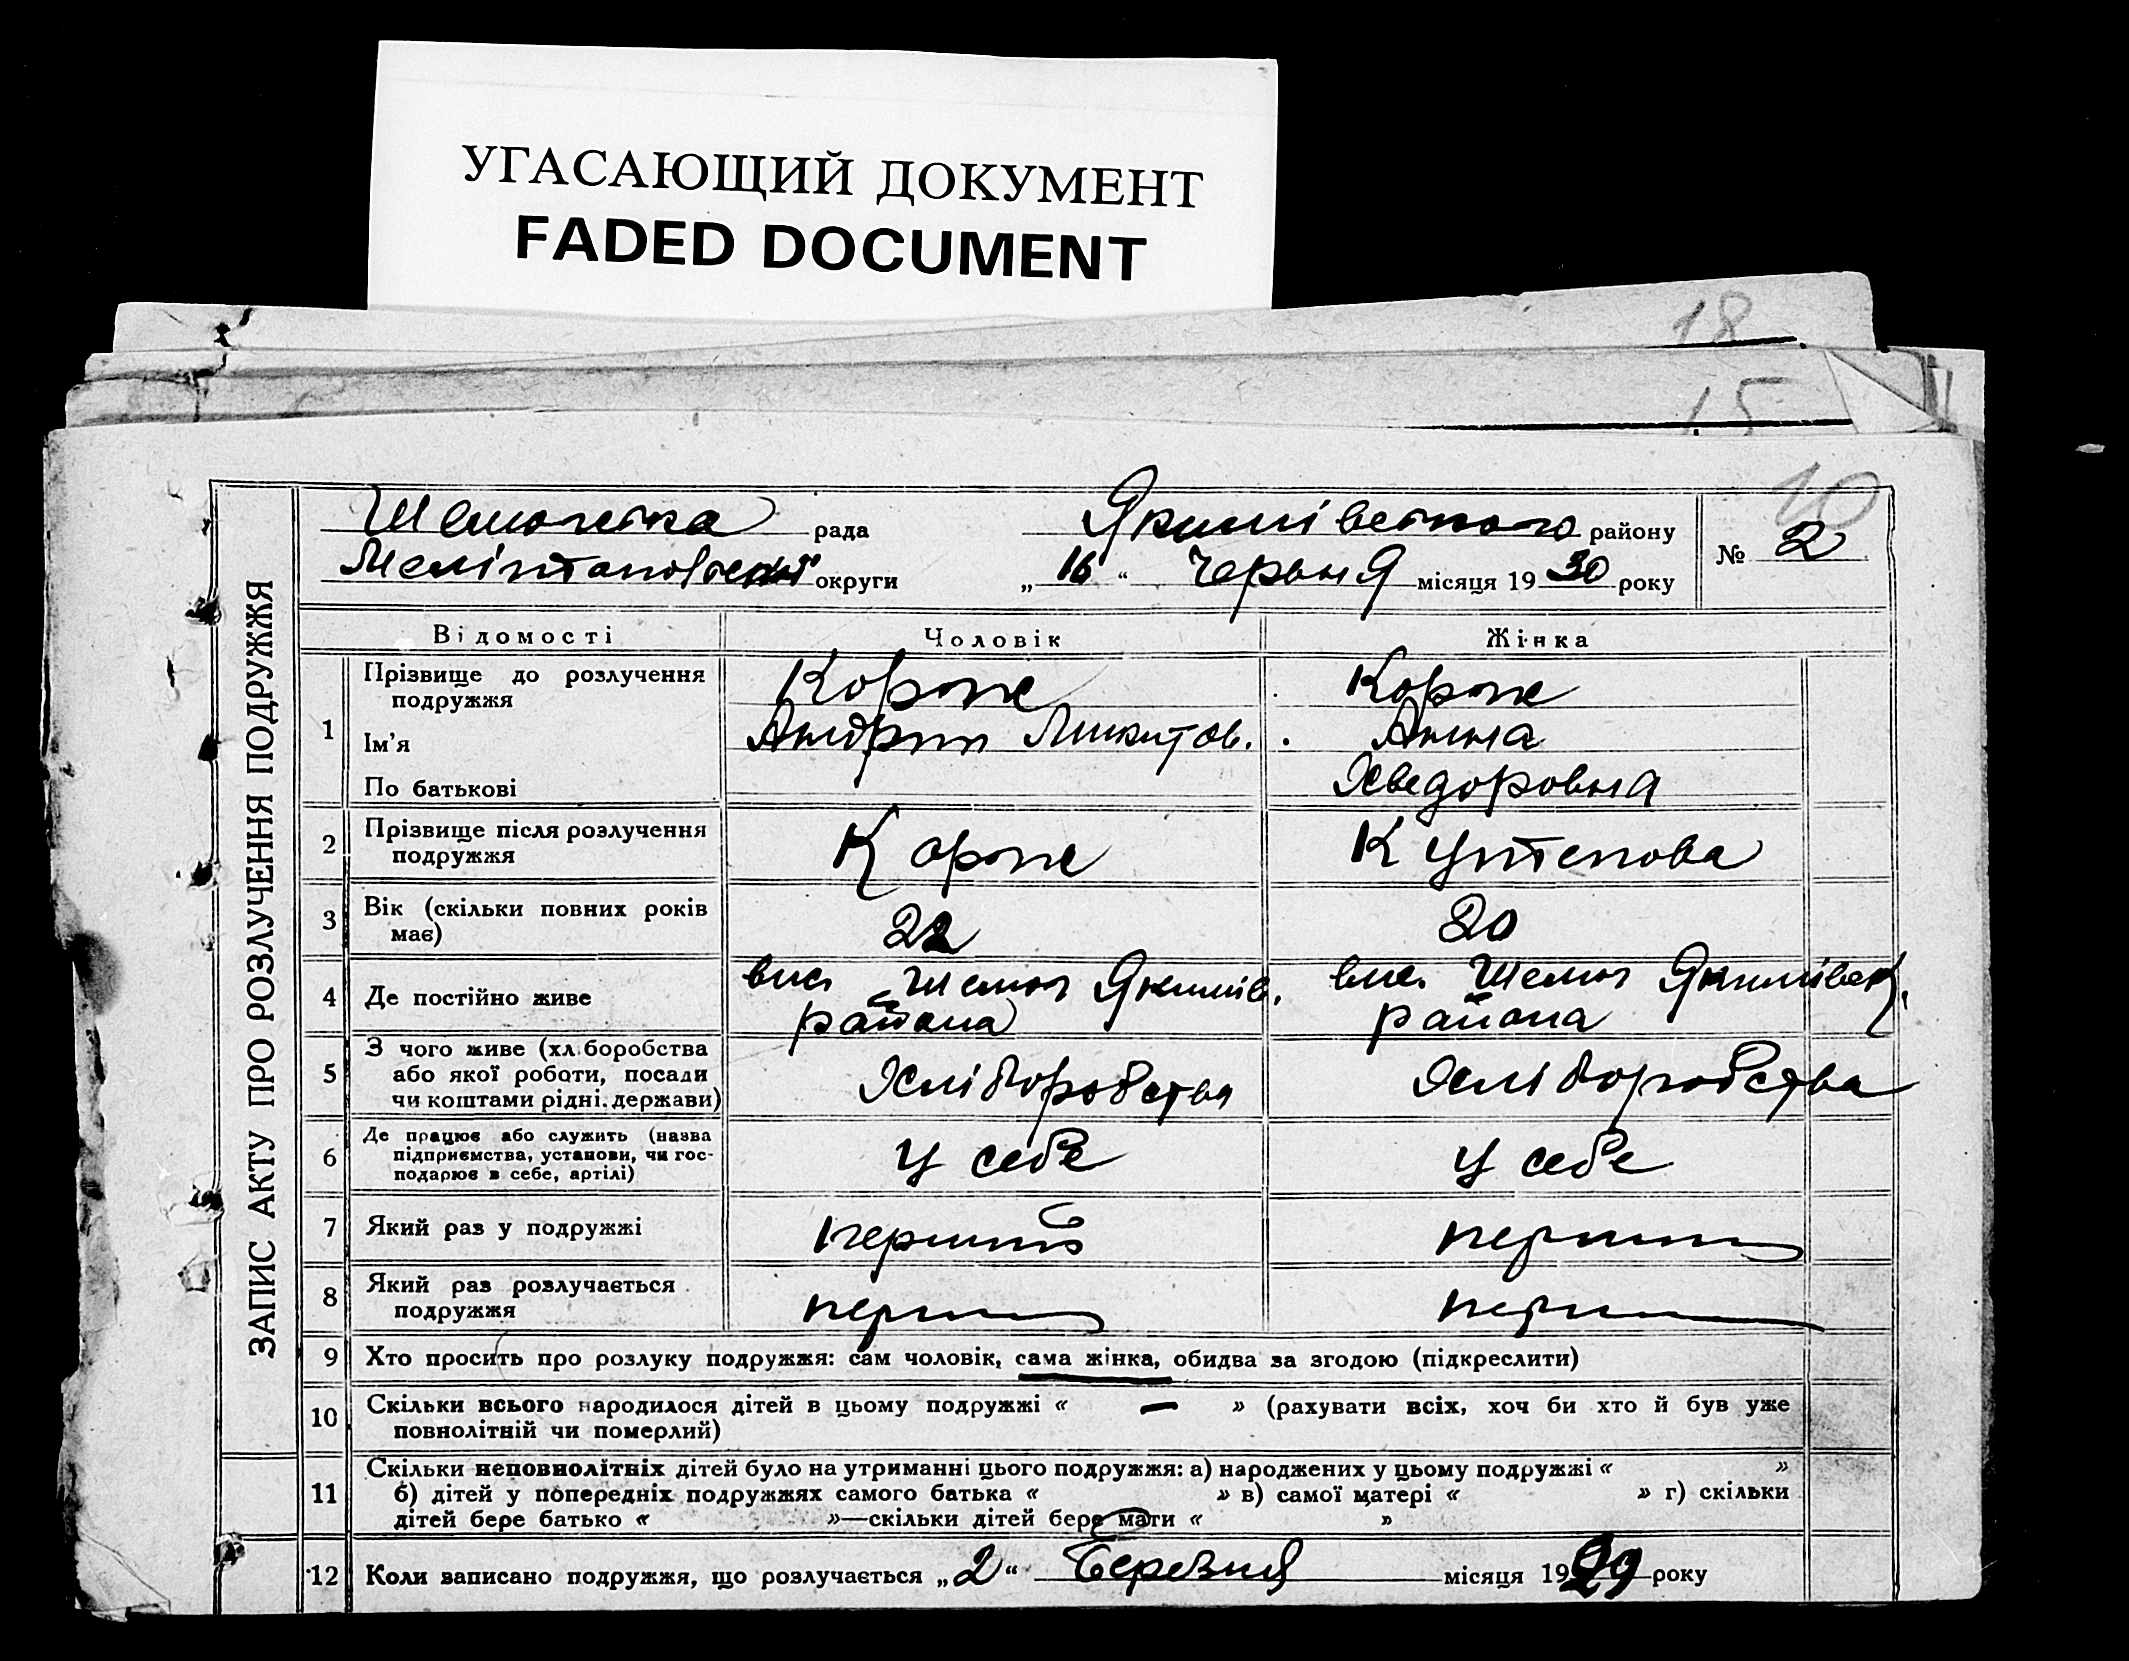 УГАСАЮЩИЙ ДОКУМЕНТ
FADED DOCUMENT
18
15
10
ЗАПИС АКТУ ПРО РОЗЛУЧЕННЯ ПОДРУЖЖЯ
рада Якимівського району № 2
округи „ 16 “ Червня місяця 19 30 року
Відомості Чоловік Жінка
1 Прізвище до розлучення подружжя Корж Корж
Ім'я Андрій Микитов. Анна
По батькові Хведоровна
2 Прізвище після розлучення подружжя Корж Кутепова
3 Вік (скільки повних років має) 22 20
4 Де постійно живе вис. Шелюг Якимів. района вис. Шелюг Якимівск. района
5 З чого живе (хл.боробства або якої роботи, посади чи коштами рідні, держави) Хліборобства Хліборобства
6 Де працює або служить (назва підприємства, установи, чи господарює в себе, артілі) У себе У себе
7 Який раз у подружжі перший перший
8 Який раз розлучається подружжя перший перший
9 Хто просить про розлуку подружжя: сам чоловік, сама жінка, обидва за згодою (підкреслити)
10 Скільки всього народилося дітей в цьому подружжі « — » (рахувати всіх, хоч би хто й був уже
повнолітній чи померлий)
11 Скільки неповнолітніх дітей було на утриманні цього подружжя: а) народжених у цьому подружжі « »
б) дітей у попередніх подружжях самого батька « » в) самої матері « » г) скільки
дітей бере батько « »—скільки дітей бере мати « »
12 Коли записано подружжя, що розлучається „ 2 “ Березня місяця 19 29 року